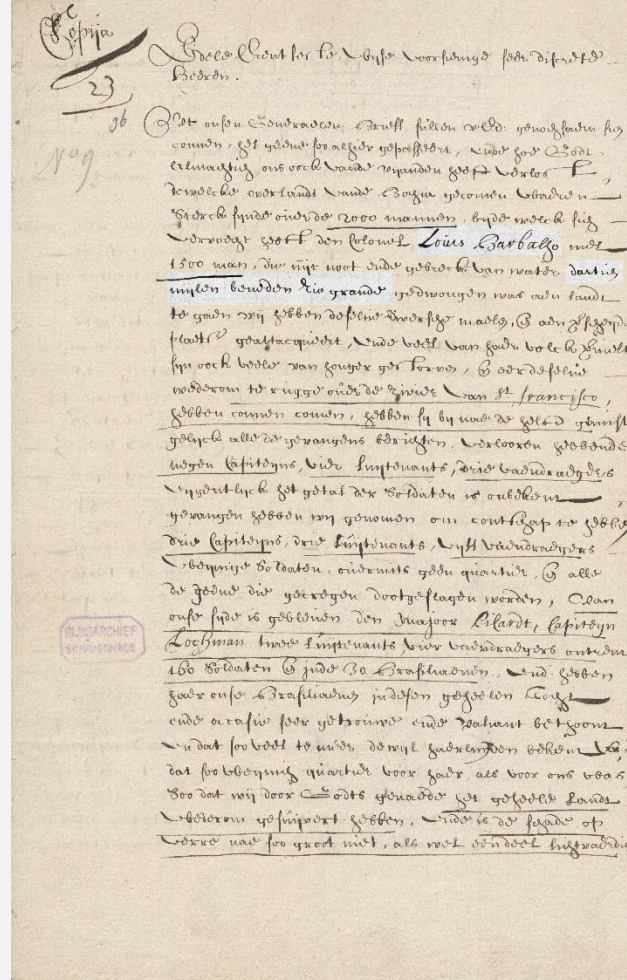 Copija
23
36
N° 9.
Edele Erentfeste, Wijse Voorsienige seer discrete
Heeren.
Uijt onsen Generaelen Brieff sullen u Ed: genoechsaem sien
connen, het geene soo alhier gepasseert, ende hoe Godt
Almachtich ons oock vande vijanden heeft verlost,
dewelcke overlandt vande Bahia gecomen waeren
sterck sijnde over de 2000 mannen, bijde welck sich
vervoecht heeft den Colonel Louis Barbalho met
1500 man, die uijt noot ende gebreck van water dartich
mijlen beneden Rio grande gedwongen was aen landt
te gaen wij hebben deselve diversche maels, en aen
plaets geattacqueert, ende veel van haer volck
sijn oock veele van honger gestorven, en eer deselve
wederom te rugge over de rivier van St francisco,
hebben connen comen, hebben sij bij nae de helft gemist
gelijck alle de gevangens berichten, verlooren hebbende
negen Capiteijns, vier luijtenants, drie vaendraegers
eijgentlijck het getal der Soldaten is onbekent
gevangen hebben wij genomen om contschap te hebben
drie Capiteijns, drie luijtenants, vijff vaendraegers
weijnige Soldaten, overmits geen quartier, en alle
de geene die gecregen dootgeslagen worden, Van
onse sijde is gebleven den Majoor Picardt, Capiteijn
Lochman twee luijtenants, vier vaendragers ontrent
160 Soldaten en inde 30 Brasilianen, ende hebben
haer onse Brasilianen in desen geheelen tocht
ende occasie seer getrouwe ende valiant bethoont
en dat soo veel te meer dewijl haerluijden bekent was
dat soo weijnich quartier voor haer, als voor ons was
Soo dat wij door Godts genaede het geheele Landt
wederom gesuijvert hebben, ende is de schade op
verre nae soo groot niet, als wel een deel
RIJKSARCHIEF
S'GRAVENHAGE